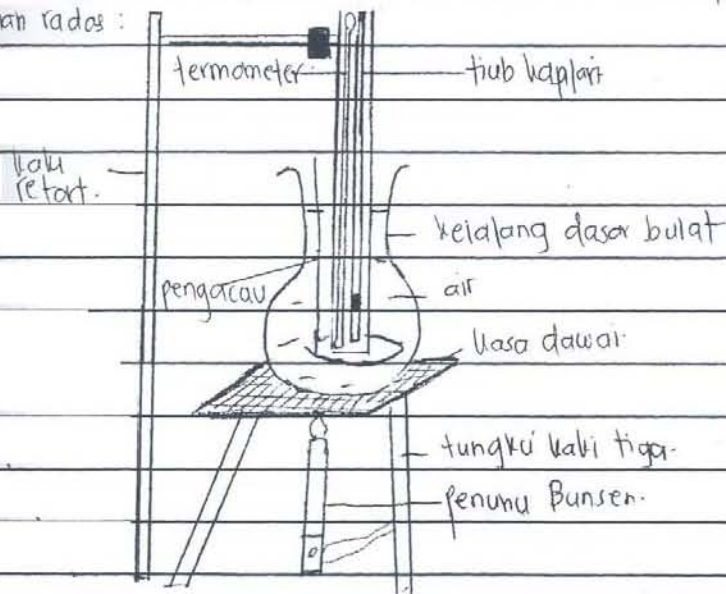 an radas :
termometer
tiub kapilari
kaki
retort.
kelalang dasar bulat
pengacau
air
kasa dawai.
tungku kaki tiga.
penunu Bunsen.